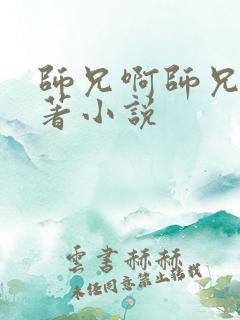 師兄啊師兄
著小說
雲書赫赫
未经同意禁止转载